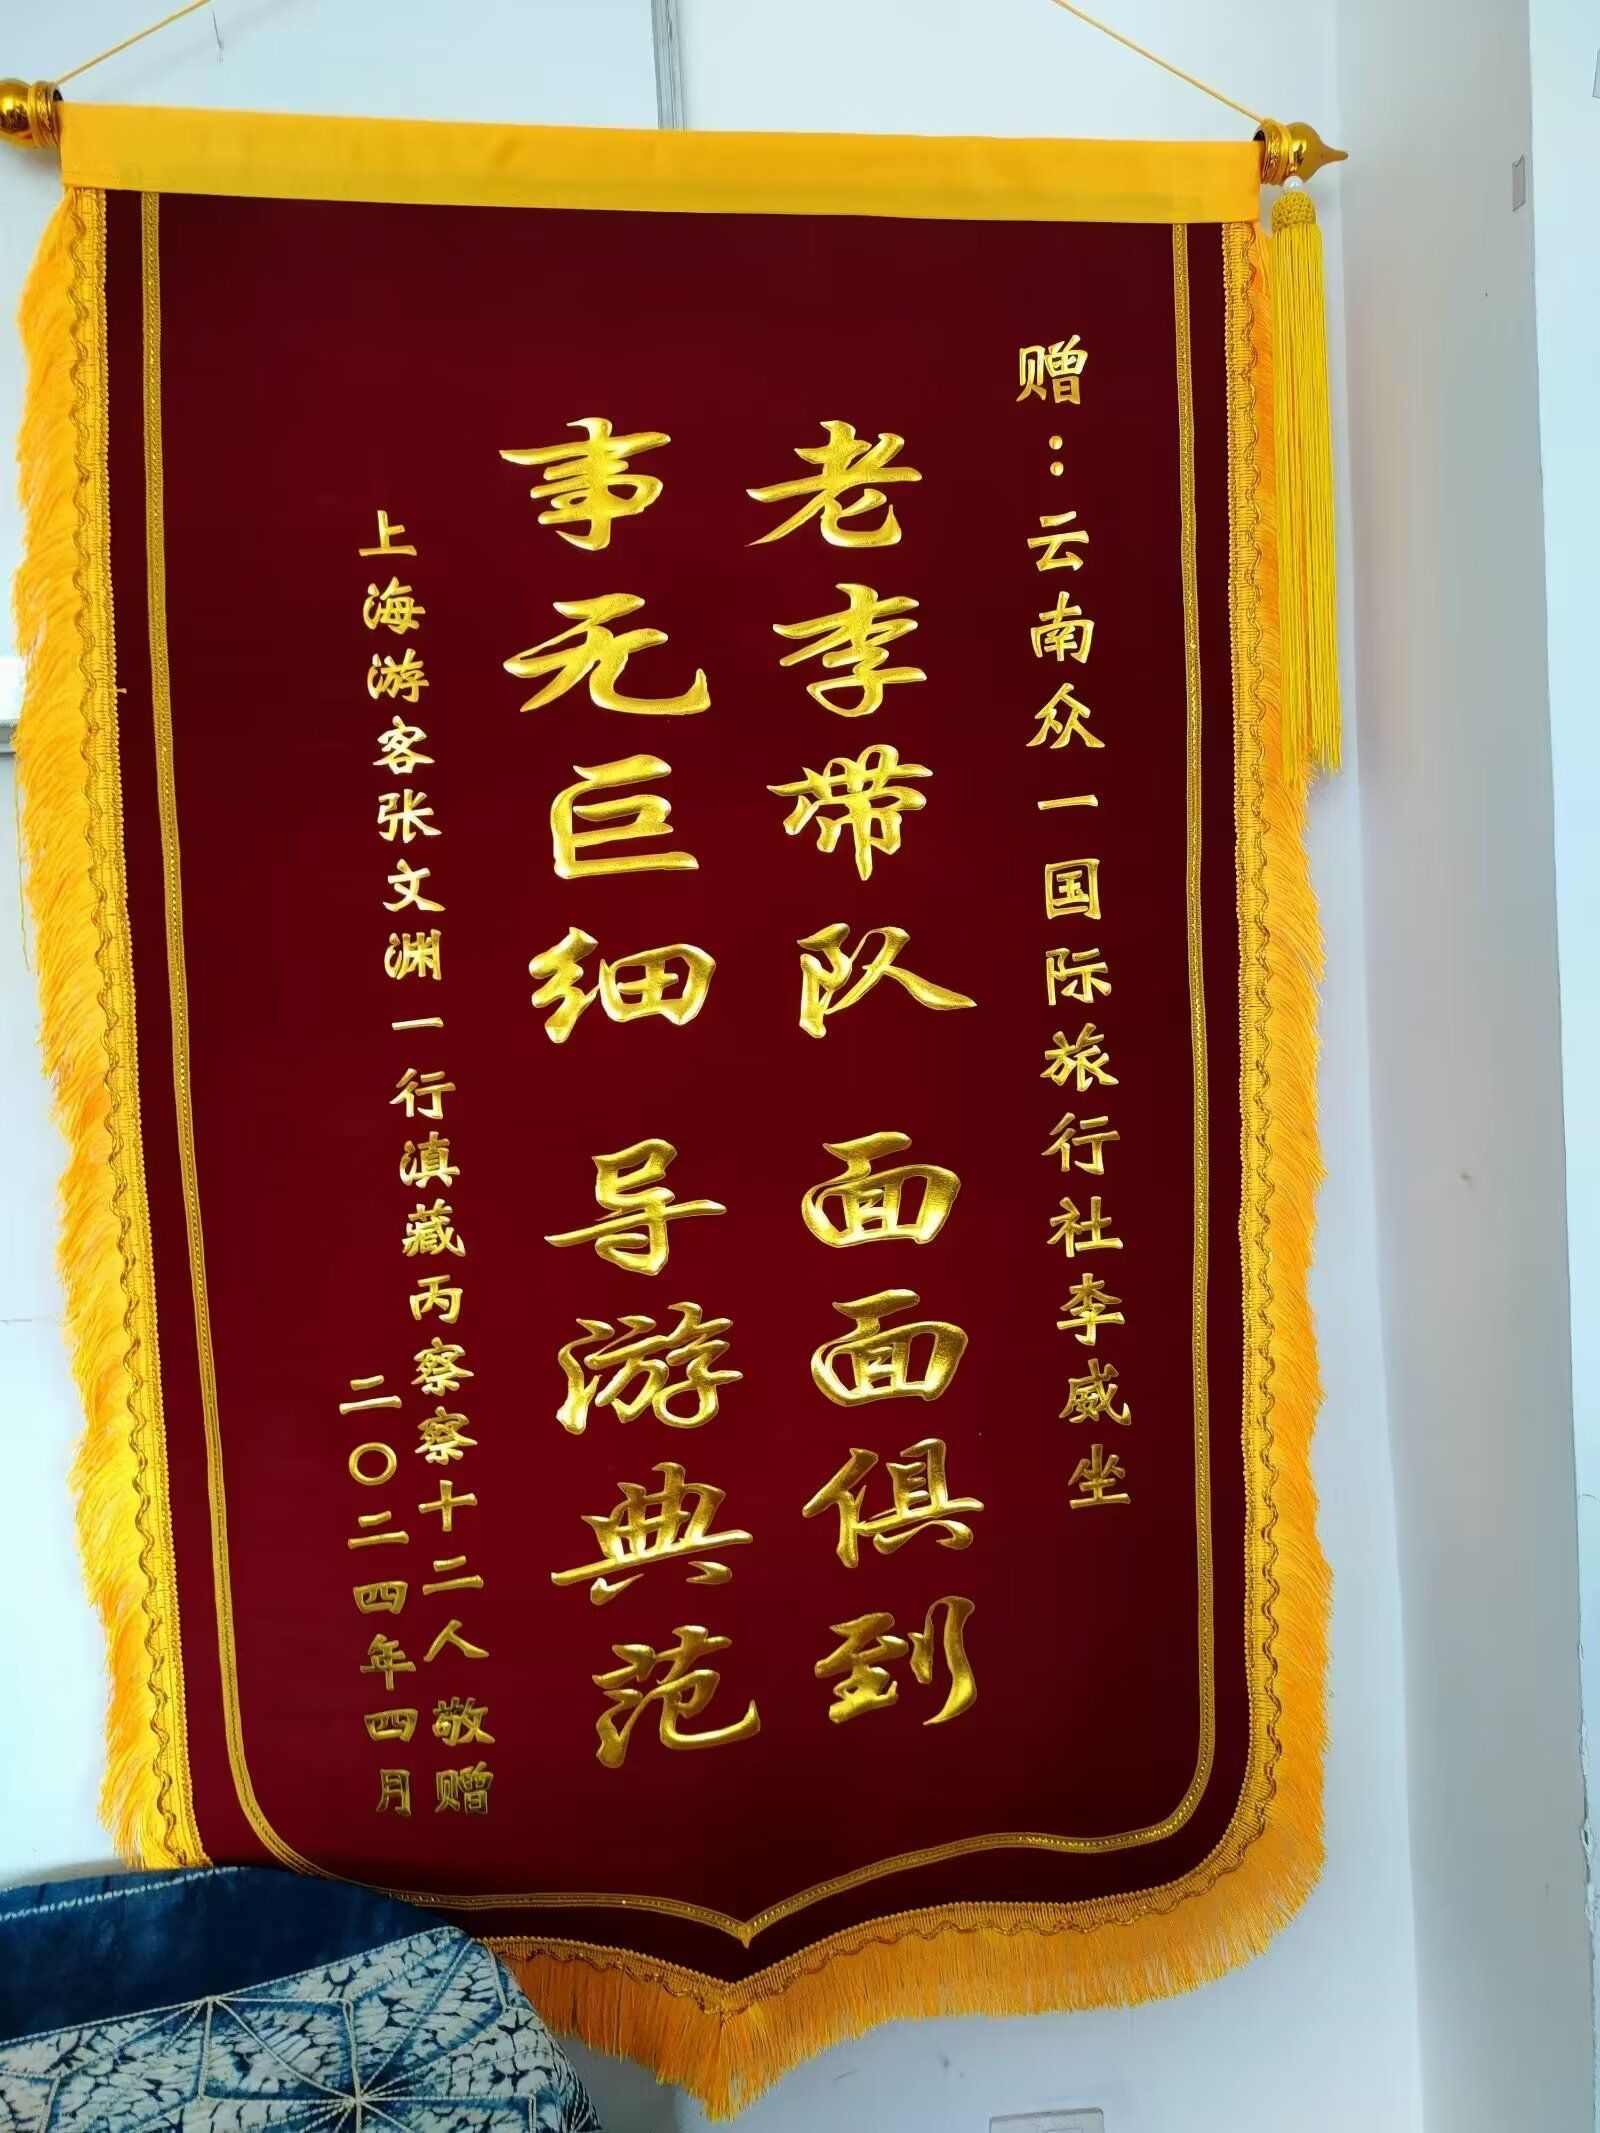 赠：云南众一国际旅行社李威坐
老李带队 面面俱到
事无巨细 导游典范
上海游客张文渊一行滇藏丙察察十二人敬赠
二〇二四年四月